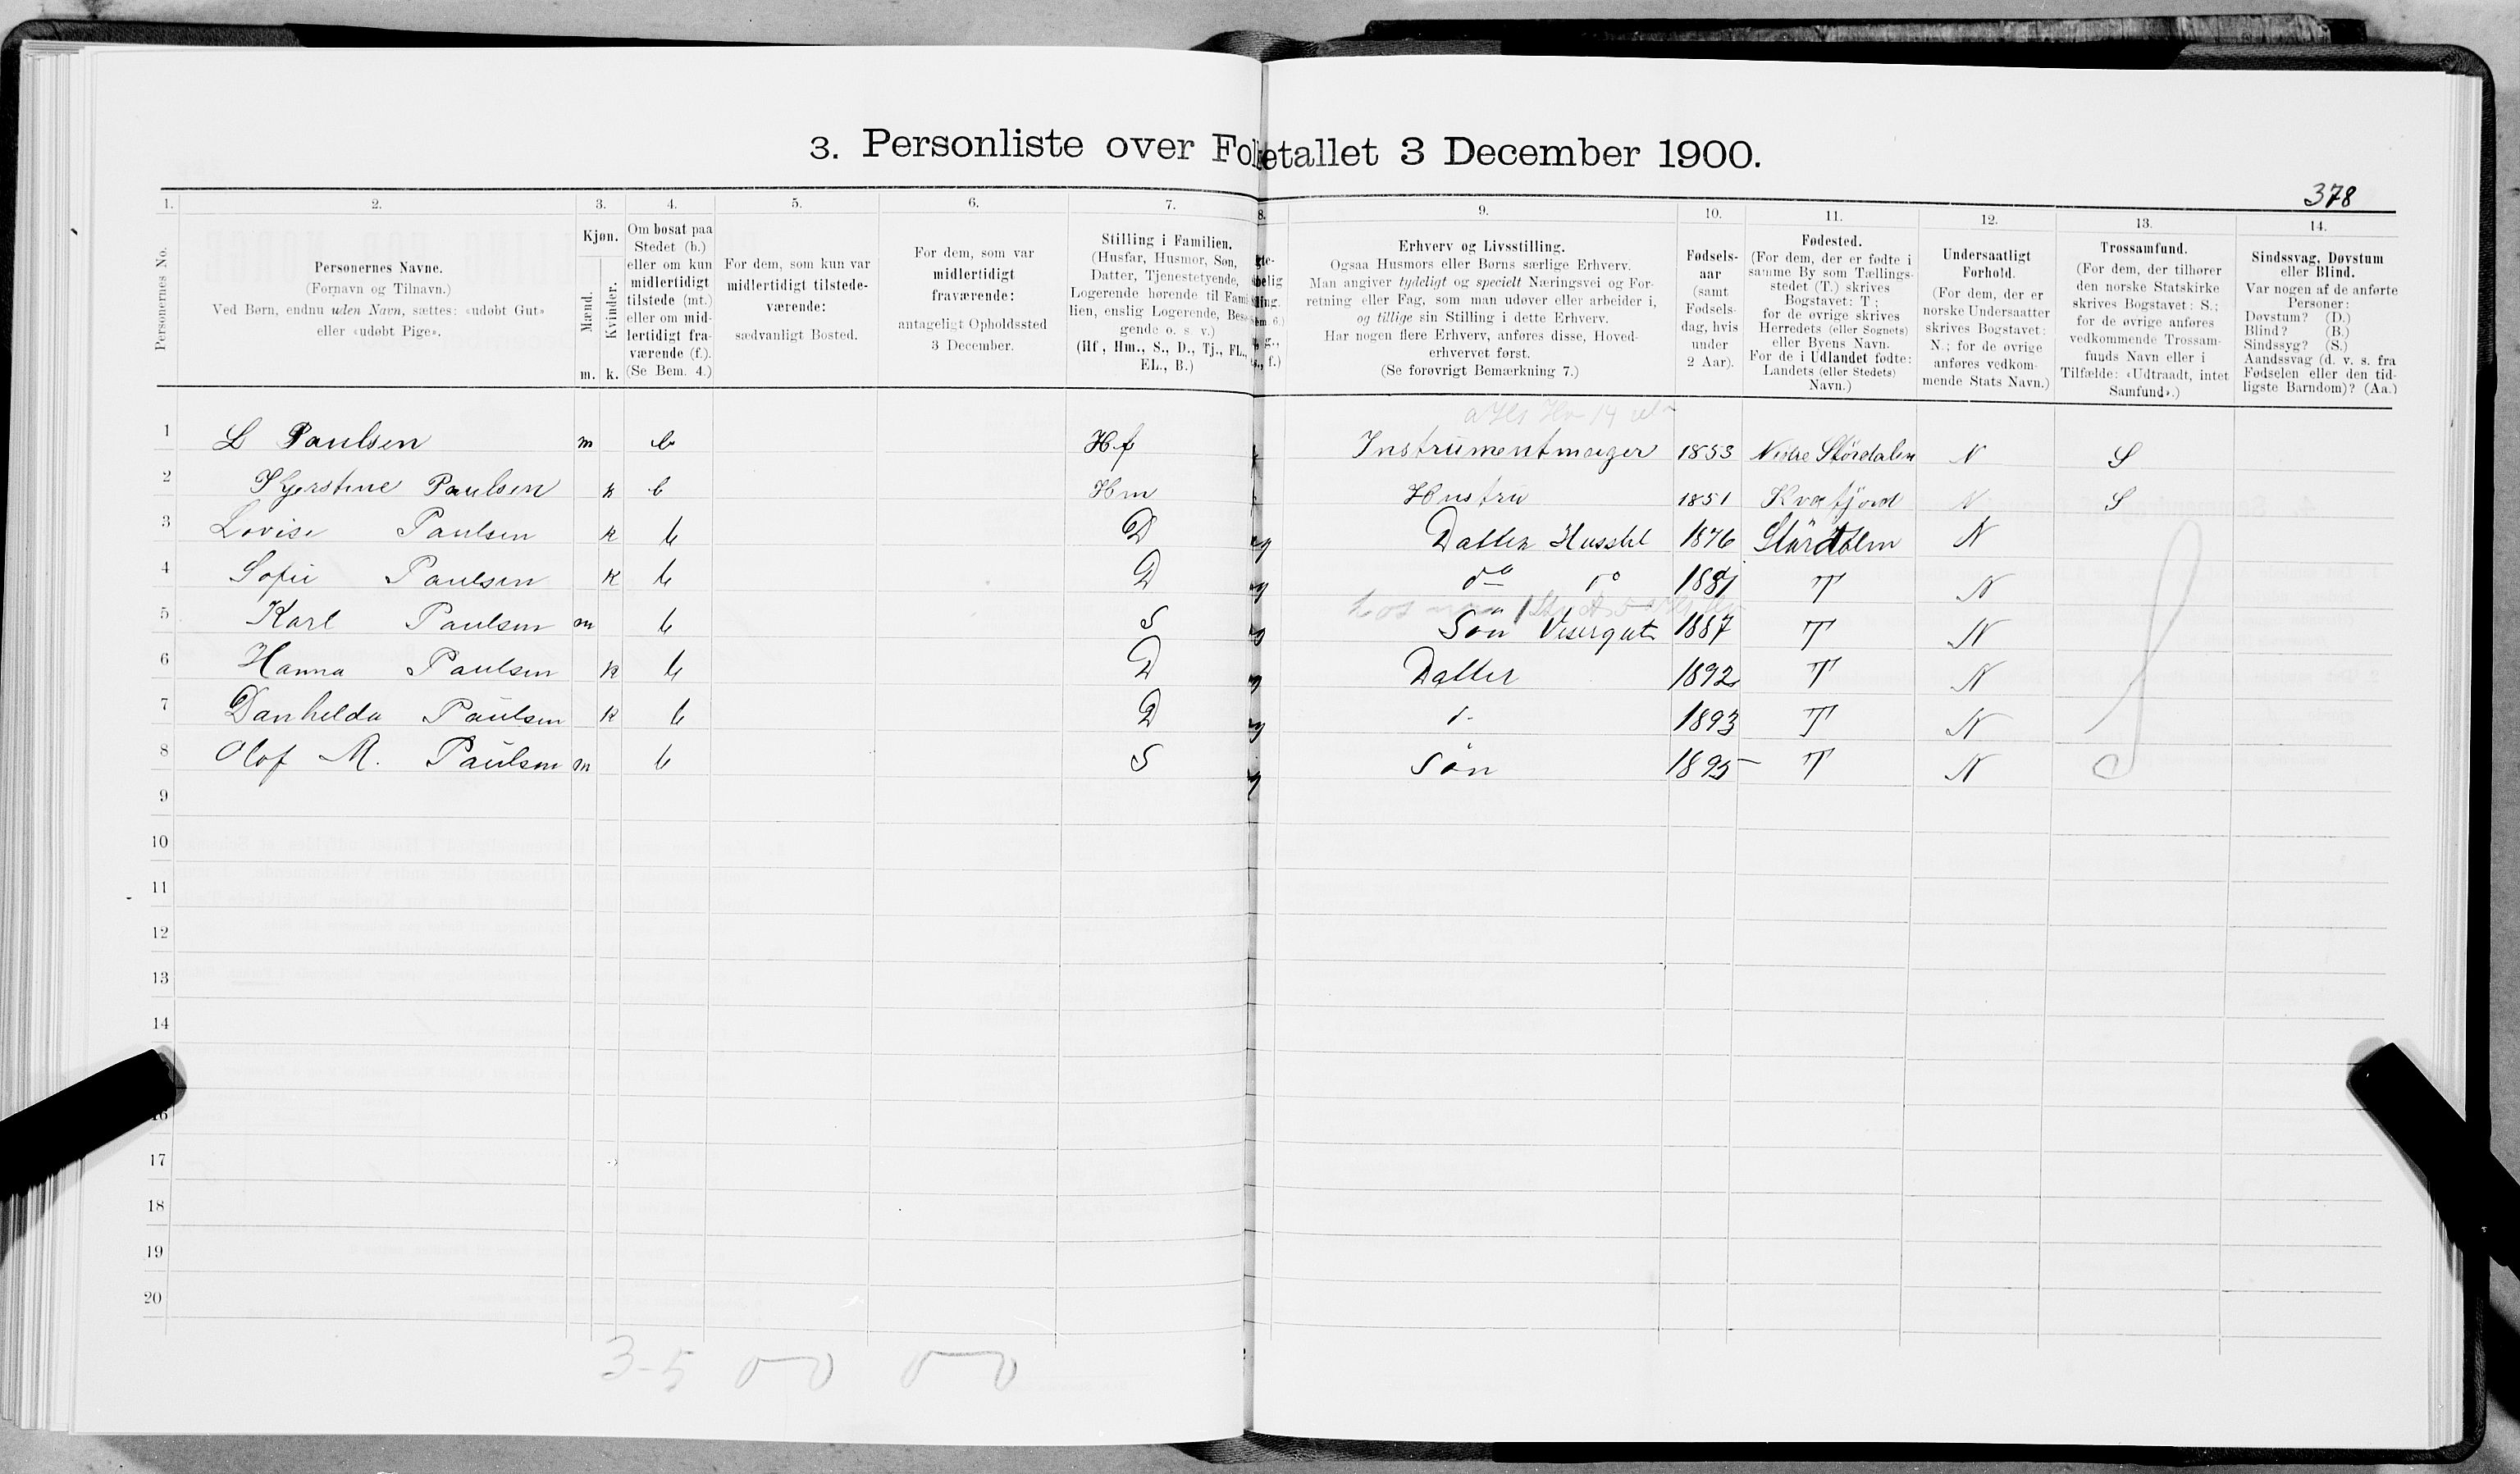 3. Personliste over Folketallet 3 December 1900.
378
1. 2. 3. 4. 5. 6. 7. 8. 9. 10. 11. 12. 13. 14.
Personernes No.
Personernes Navne.
(Fornavn og Tilnavn.)
Ved Børn, endnu uden Navn, sættes: «udøbt Gut»
eller «udøbt Pige».
Kjøn.
Mænd.
Kvinder.
m. k.
Om bosat paa
Stedet (b.)
eller om kun
midlertidigt
tilstede (mt.)
eller om mid-
lertidigt fra-
værende (f.).
(Se Bem. 4.)
For dem, som kun var
midlertidigt tilstede-
værende:
sædvanligt Bosted.
For dem, som var
midlertidigt
fraværende:
antageligt Opholdssted
3 December.
Stilling i Familien.
(Husfar, Husmor, Søn,
Datter, Tjenestetyende,
Logerende hørende til Fami-
lien, enslig Logerende, Besø-
gende o. s. v.)
(Hf., Hm., S., D., Tj., FL.,
EL., B.)
Erhverv og Livsstilling.
Ogsaa Husmors eller Børns særlige Erhverv.
Man angiver tydeligt og specielt Næringsvei og For-
retning eller Fag, som man udøver eller arbeider i,
og tillige sin Stilling i dette Erhverv.
Har nogen flere Erhverv, anføres disse, Hoved-
erhvervet først.
(Se forøvrigt Bemærkning 7.)
Fødsels-
aar
(samt
Fødsels-
dag, hvis
under
2 Aar).
Fødested.
(For dem, der er fødte i
samme By som Tællings-
stedet (T.) skrives
Bogstavet: T;
for de øvrige skrives
Herredets (eller Sognets)
eller Byens Navn.
For de i Udlandet fødte:
Landets (eller Stedets)
Navn.)
Undersaatligt
Forhold.
(For dem, der er
norske Undersaatter
skrives Bogstavet:
N.; for de øvrige
anføres vedkom-
mende Stats Navn.)
Trossamfund.
(For dem, der tilhører
den norske Statskirke
skrives Bogstavet: S.;
for de øvrige anføres
vedkommende Trossam-
funds Navn eller i
Tilfælde: «Udtraadt, intet
Samfund».)
Sindssvag, Døvstum
eller Blind.
Var nogen af de anførte
Personer:
Døvstum? (D.)
Blind? (B.)
Sindssyg? (S.)
Aandssvag (d. v. s. fra
Fødselen eller den tid-
ligste Barndom)? (Aa.)
1 L Paulsen m b Hf Instrumentmager 1853 Nedre Størdalen N S
2 Kjerstine Paulsen k b Hm Hustru 1851 Kvæfjord N S
3 Lovise Paulsen k b D g Datter Husstel 1876 Størdalen N
4 Sofie Paulsen k b D g do do 1881 T N
5 Karl Paulsen m b S g Søn Visergut 1887 T N
6 Hanna Paulsen k b D g Datter 1892 T N
7 Danhelda Paulsen k b D g d- 1893 T N
8 Olof M. Paulsen m b S g Søn 1895 T N
S
9
10
11
12
13
14
16
17
18
19
20
3-5 0-0 0-0